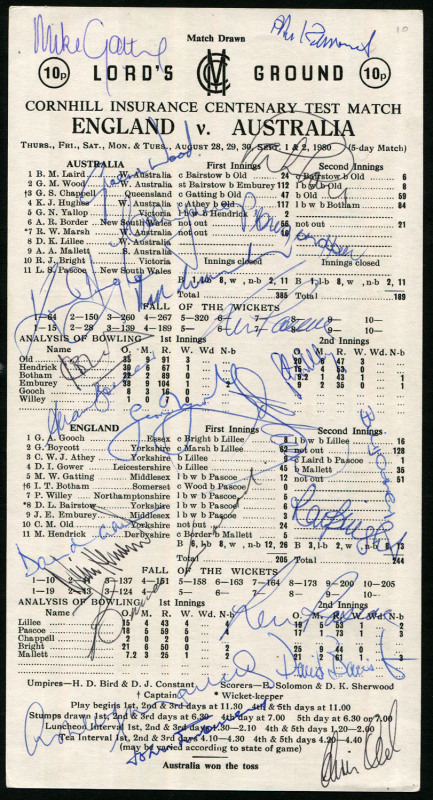 Mike Gatting
Match Drawn
10
10p LORD'S MCC GROUND 10p
CORNHILL INSURANCE CENTENARY TEST MATCH
ENGLAND v. AUSTRALIA
THURS., FRI., SAT., MON. & TUES., AUGUST 28, 29, 30, SEPT. 1 & 2, 1980 (5-day Match)
AUSTRALIA First Innings Second Innings
1 B. M. Laird W. Australia c Bairstow b Old 24 c Bairstow b Old 6
2 G. M. Wood W. Australia st Bairstow b Emburey 112 l b w b Old 8
†3 G. S. Chappell Queensland c Gatting b Old 47 b Old 59
4 K. J. Hughes W. Australia c Athey b Old 117 l b w b Botham 84
5 G. N. Yallop Victoria l b w b Hendrick 2
6 A. R. Border New South Wales not out 56 not out 21
*7 R. W. Marsh W. Australia not out 16
8 D. K. Lillee W. Australia
9 A. A. Mallett S. Australia
10 R. J. Bright Victoria Innings closed Innings closed
11 L. S. Pascoe New South Wales
B , l-b 8, w , n-b 2, 11 B 1, l-b 8, w , n-b 2, 11
Total 385 Total 189
FALL OF THE WICKETS
1—64 2—150 3—260 4—267 5—320 6— 7— 8— 9— 10—
1—15 2—28 3—139 4— 5— 6— 7— 8— 9— 10—
ANALYSIS OF BOWLING 1st Innings 2nd Innings
Name O. M. R. W. Wd. N-b O. M. R. W. Wd. N-b
Old 35 9 91 3 20 6 47 3
Hendrick 30 6 67 1 15 4 53 0
Botham 22 2 89 0 9.2 1 43 1
Emburey 38 9 104 1 2 9 2 35 0
Gooch 8 3 16 0
Willey 1 0 7 0
ENGLAND First Innings Second Innings
1 G. A. Gooch Essex c Bright b Lillee 8 l b w b Lillee 16
2 G. Boycott Yorkshire c Marsh b Lillee 62 not out 128
3 C. W. J. Athey Yorkshire b Lillee c Laird b Pascoe 1
4 D. I. Gower Leicestershire b Lillee b Mallett 35
5 M. W. Gatting Middlesex l b w b Pascoe 12 not out 51
†6 I. T. Botham Somerset c Wood b Pascoe 0
7 P. Willey Northamptonshire l b w b Pascoe 5
*8 D. L. Bairstow Yorkshire l b w b Pascoe 6
9 J. E. Emburey Middlesex l b w b Pascoe 3
10 C. M. Old Yorkshire not out 24
11 M. Hendrick Derbyshire c Border b Mallett 5
B 6, l-b 8, w , n-b 12, 26 B 3, l-b 2, w , n-b 8, 13
Total Total 244
FALL OF THE WICKETS
1—10 3—137 4—151 5—158 6—163 7—164 8—173 9—200 10—205
1—19 2—43 3—124 4— 5— 6— 7— 8— 9— 10—
ANALYSIS OF BOWLING 1st Innings 2nd Innings
Name O. M. R. W. Wd. N-b O. M. R. W. Wd. N-b
Lillee 15 4 43 4 19 5 53 1
Pascoe 18 5 59 5 4 17 1 73 1 3
Chappell 2 0 2 0
Bright 21 6 50 0 25 9 44 0
Mallett 7.2 3 25 1 21 2 61 1
Umpires—H. D. Bird & D. J. Constant Scorers—E. Solomon & D. K. Sherwood
† Captain * Wicket-keeper
Play begins 1st, 2nd & 3rd days at 11.30 4th & 5th days at 11.00
Stumps drawn 1st, 2nd & 3rd days at 6.30 4th day at 7.00 5th day at 6.00 or 6.30
Luncheon Interval 1st, 2nd & 3rd days 1.30—2.10 4th & 5th days 1.00—1.40
Tea Interval 1st, 2nd & 3rd days 4.10—4.30 4th & 5th days 4.20—4.40
(may be varied according to state of game)
Chris Old
Australia won the toss